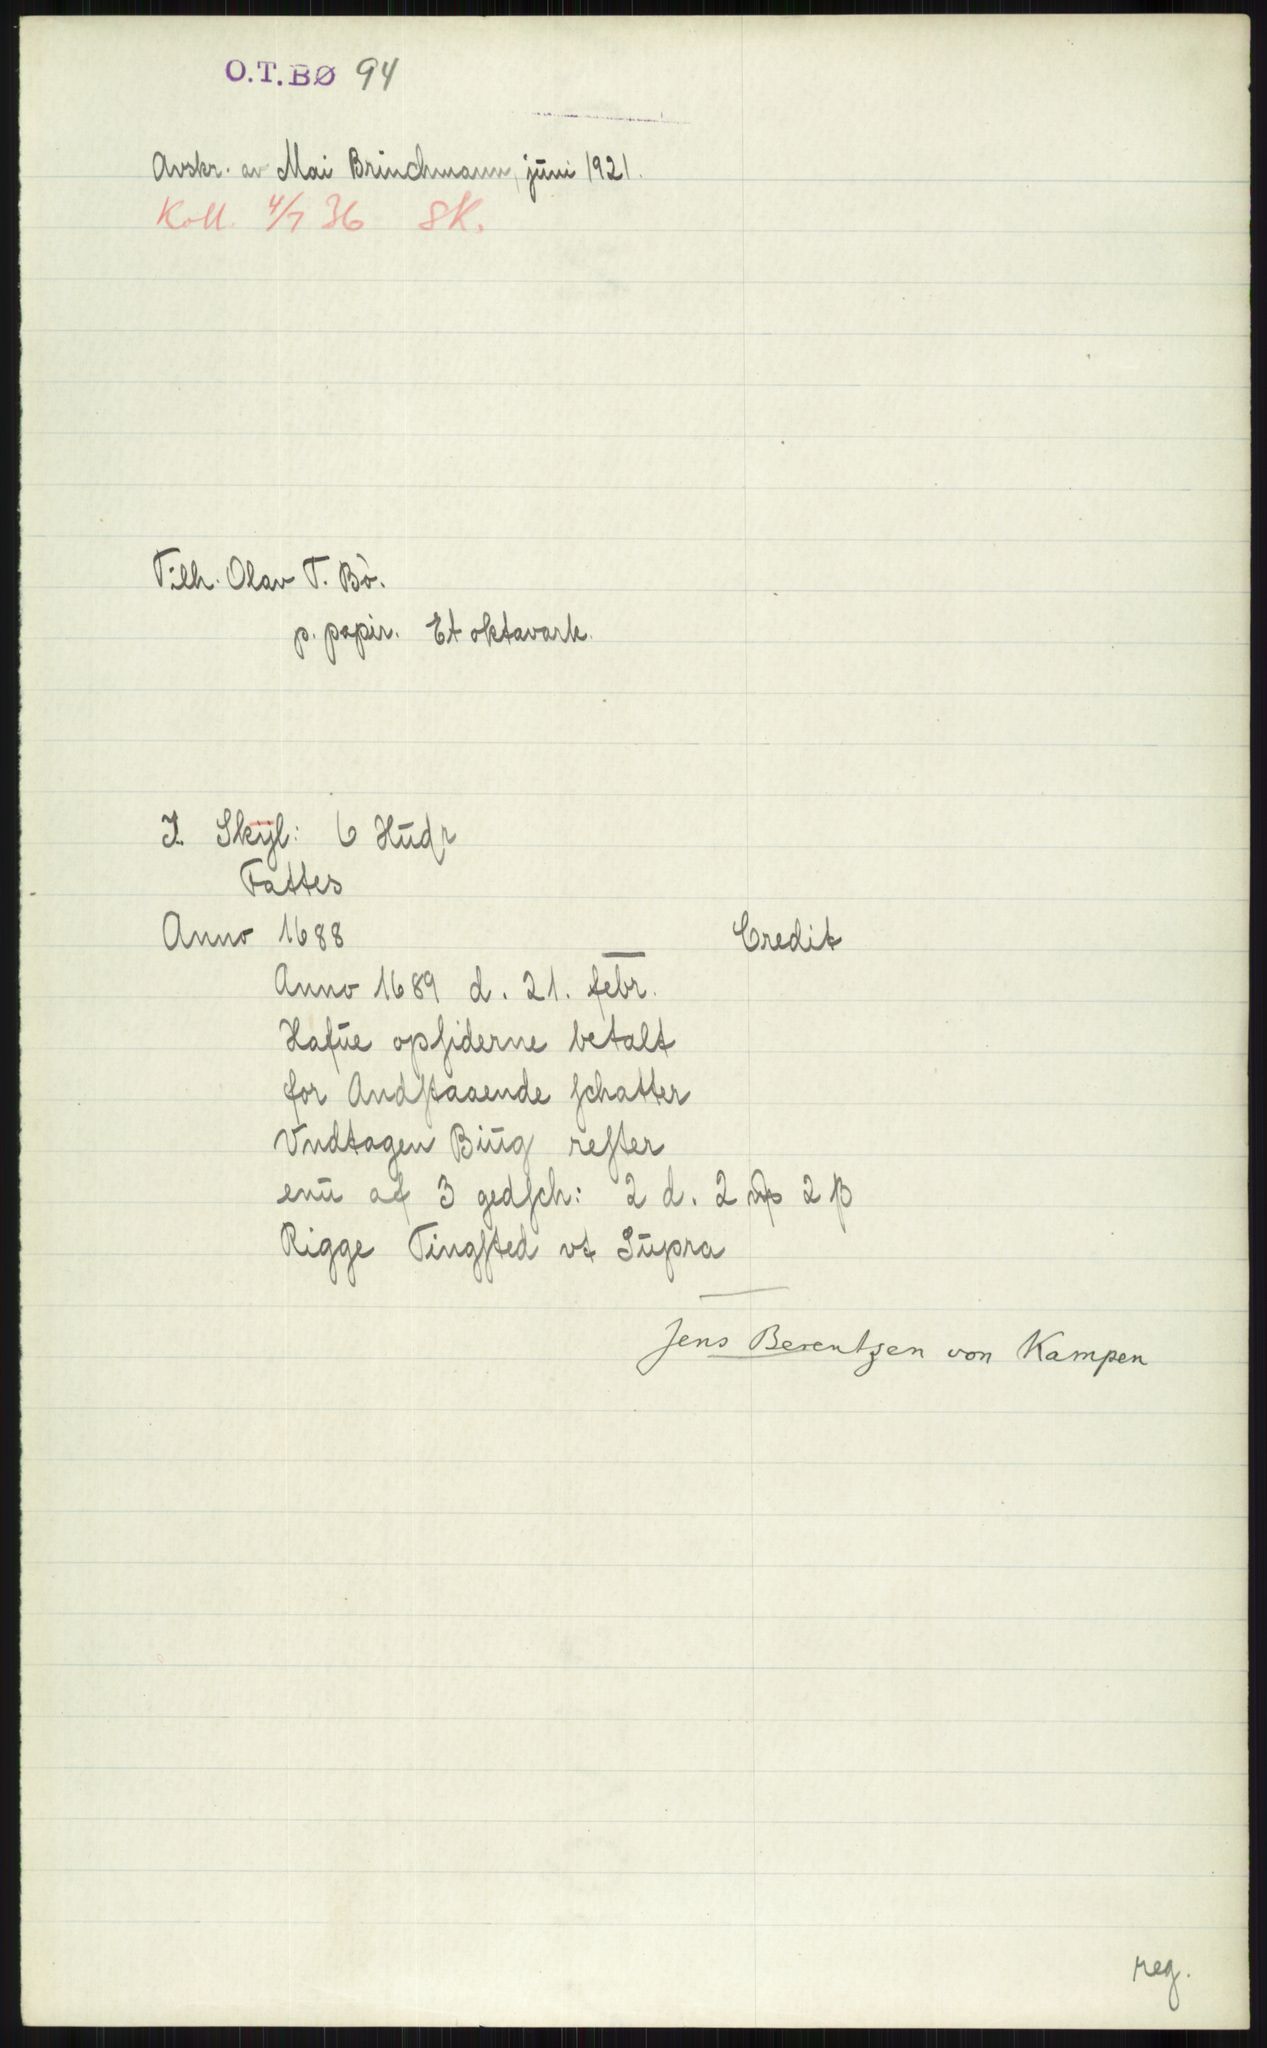 O.T.BØ 94
Avskr. av Mai Brinchmann, juni 1921.
Koll. 4/7 36 SK.
Tilh. Olav T. Bø.
p. papir. Et oktavark.
J. Skÿl: 6 Hudr
Fattes
Anno 1688 Credit
Anno 1689 d. 21. febr.
Hafue opſiderne betalt
for Andſtaaende ſchatter
Vndtagen Biug reſter
enu af 3 gedſch: 2 d. 2 2 β
Rigge Tingſted vt Supra
Jens Berentzen von Kampen
reg.